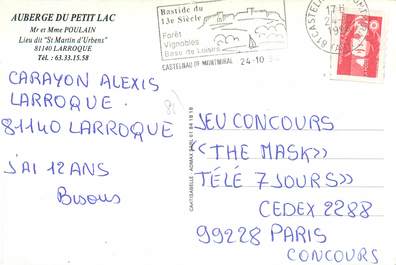 AUBERGE DU PETIT LAC
Mr et Mme POULAIN
Lieu dit "St Martin d'Urbens"
81140 LARROQUE
Tél. : 63.33.15.58
Bastide du
13e Siècle
Forêt
Vignobles
Base de Loisirs
CASTELNAU DE MONTMIRAL 24-10
17H
24
CARAYON ALEXIS
LARROQUE.
81140 LARROQUE
J'AI 12 ANS
Bisous
JEU CONCOURS
<<THE MASK>>
TÉLÉ 7 JOURS>>
CEDEX 2288
99228 PARIS
CONCOURS